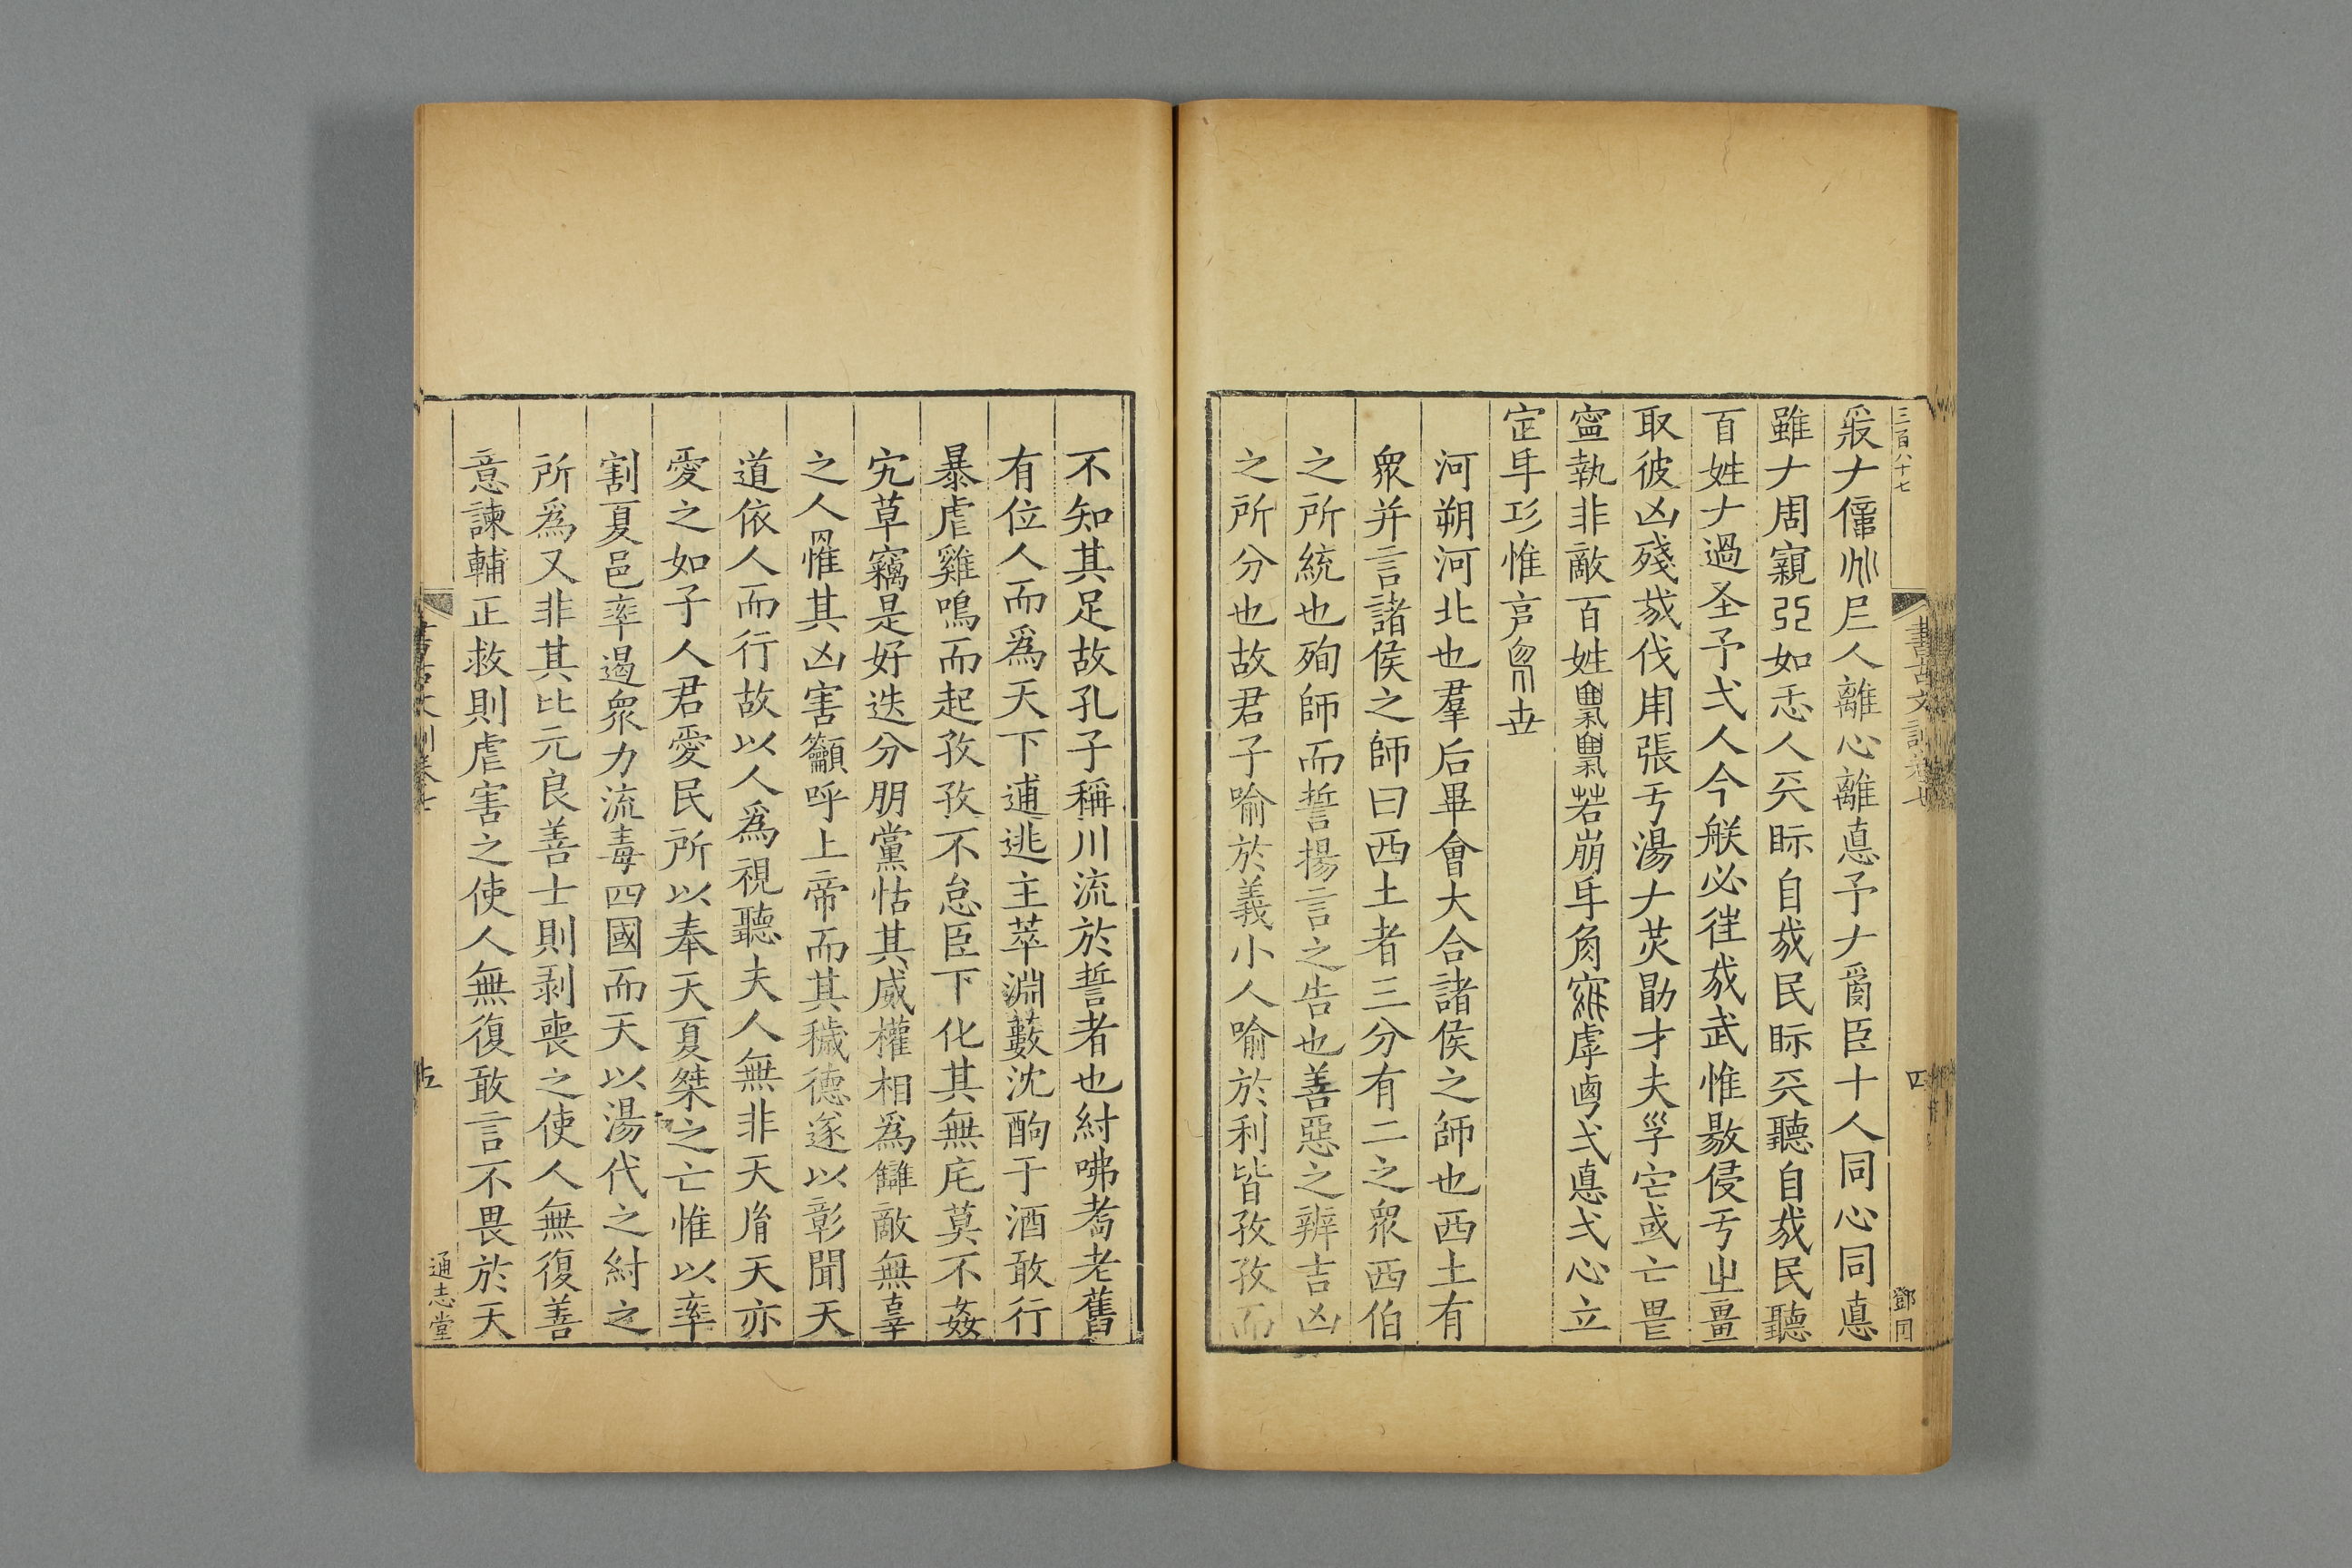 三百八十七
𠬝𠂇億𠈌𡰥人離心離悳予𠂇𤔲臣十人同心同悳
雖𠂇周寴𢎽如忎人兲眎自𢦓民眎兲聽自𢦓民聽
百姓𠂇過圣予弌人今朕必徃𢦓武惟敭侵亐㞢畺
取彼凶殘𢦓伐用張亐湯𠂇炗勖才夫孚宅或亡畏
寍執非敵百姓㮚㮚若崩𠂆角䆿虖卥弌悳弌心立
㝎𠂆㓛惟亯𠃵丗
河朔河北也羣后畢會大合諸侯之師也西土有
衆并言諸侯之師曰西土者三分有二之衆西伯
之所統也殉師而誓揚言之告也善惡之辨吉凶
之所分也故君子喻於義小人喻於利皆孜孜而
書古文訓卷七
四
鄧囘
不知其足故孔子稱川流於誓者也紂咈耇老舊
有位人而爲天下逋逃主萃淵藪沈酗于酒敢行
暴虐雞鳴而起孜孜不怠臣下化其無庀莫不姦
宄草竊是好迭分朋黨怙其威權相爲讎敵無辜
之人罔惟其凶害籲呼上帝而其穢德遂以彰聞天
道依人而行故以人爲視聽夫人無非天𦙍天亦
愛之如子人君愛民所以奉天夏桀之亡惟以率
割夏邑率遏衆力流毒四國而天以湯代之紂之
所爲又非其比元良善士則剥喪之使人無復善
意諫輔正救則虐害之使人無復敢言不畏於天
書古文訓卷七
五
通志堂